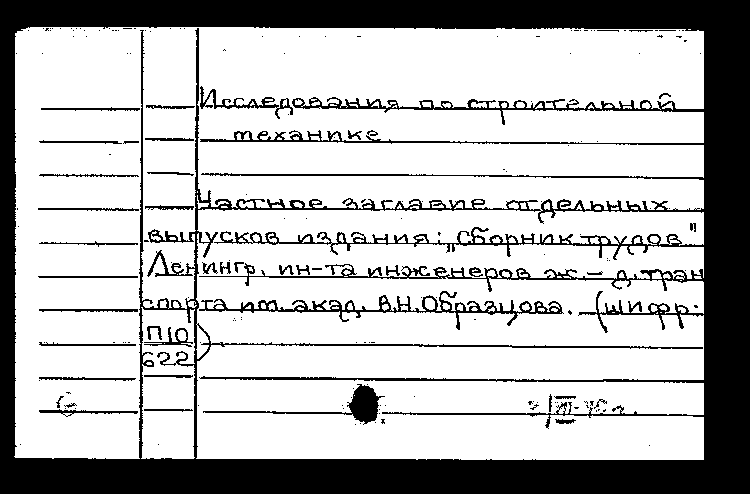 Исследования по строительной
механике.
Частное заглавие отдельных
выпусков издания: „Сборник трудов"
Ленингр. ин-та инженеров ж.-д. тран
спорта им. акад. В.Н.Образцова. (шифр:
П10
622 ).